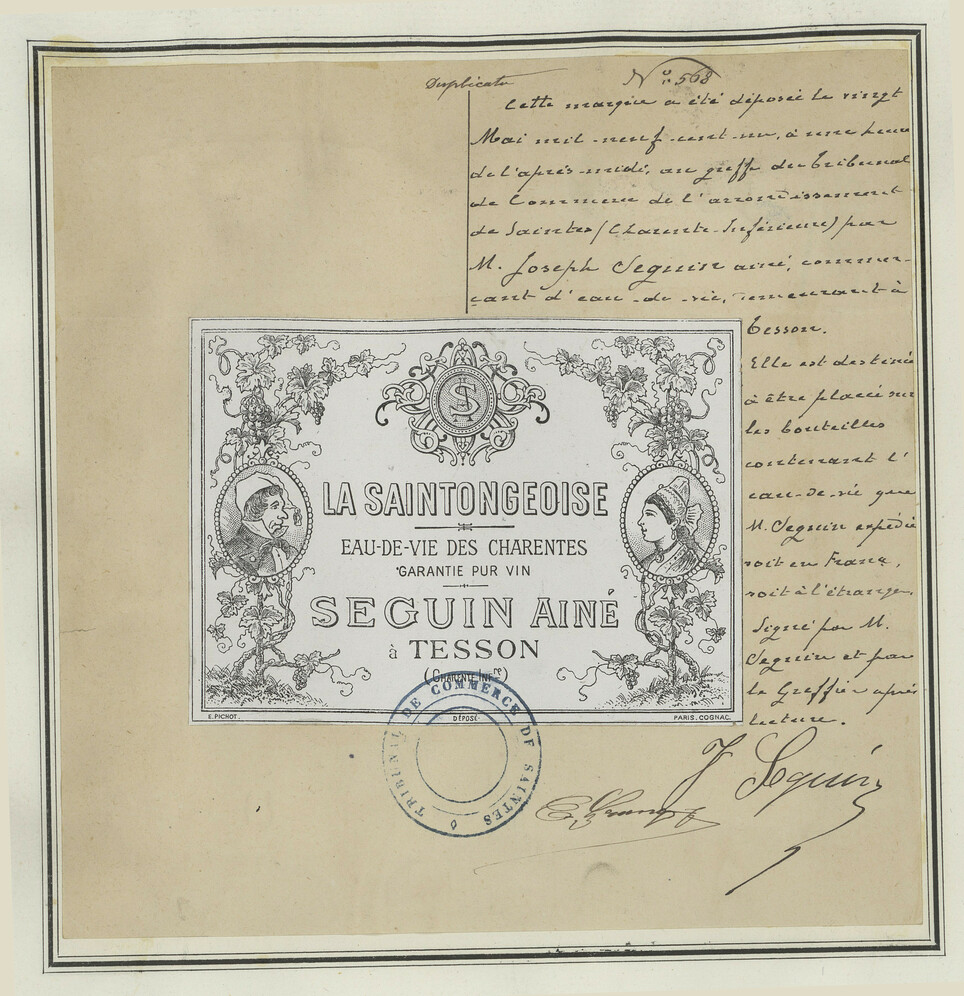 Duplicata
N° 568
Cette marque a été déposée le vingt
Mai mil-neuf-cent-un, à une heure
de l'après-midi, au greffe du tribunal
de Commerce de l'arrondissement
de Saintes (Charente-Inférieure) par
M. Joseph Seguin ainé, commer-
çant d'eau-de-vie, demeurant à
Tesson.
Elle est destinée
à être placée sur
les bouteilles
contenant l'
eau-de-vie que
M. Seguin expédie
soit en France,
soit à l'étranger.
Signé par M.
Seguin et par
le Greffier après
lecture.
J Seguin
S
LA SAINTONGEOISE
EAU-DE-VIE DES CHARENTES
GARANTIE PUR VIN
SEGUIN AINÉ
à TESSON
(CHARENTE INFRE)
E. PICHOT.
DÉPOSÉ
PARIS. COGNAC.
TRIBUNAL DE COMMERCE DE SAINTES